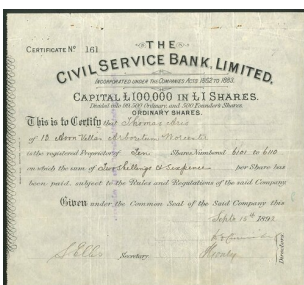 CERTIFICATE Nº 161
THE
CIVIL SERVICE BANK, LIMITED.
INCORPORATED UNDER THE COMPANIES ACTS 1862 TO 1883.
CAPITAL £100,000 IN £1 SHARES.
Divided into 99,500 Ordinary and 500 Founders Shares
ORDINARY SHARES.
This is to Certify that Thomas
of 13 Villas Arboretum Worcester
is the registered Proprietor of Ten Shares Numbered 6101 to 6110
on which the sum of Two Shillings & Sixpence per Share has
been paid, subject to the Rules and Regulations of the said Company
Given under the Common Seal of the Said Company this
Sept 15th 1892
Secretary.
Directors